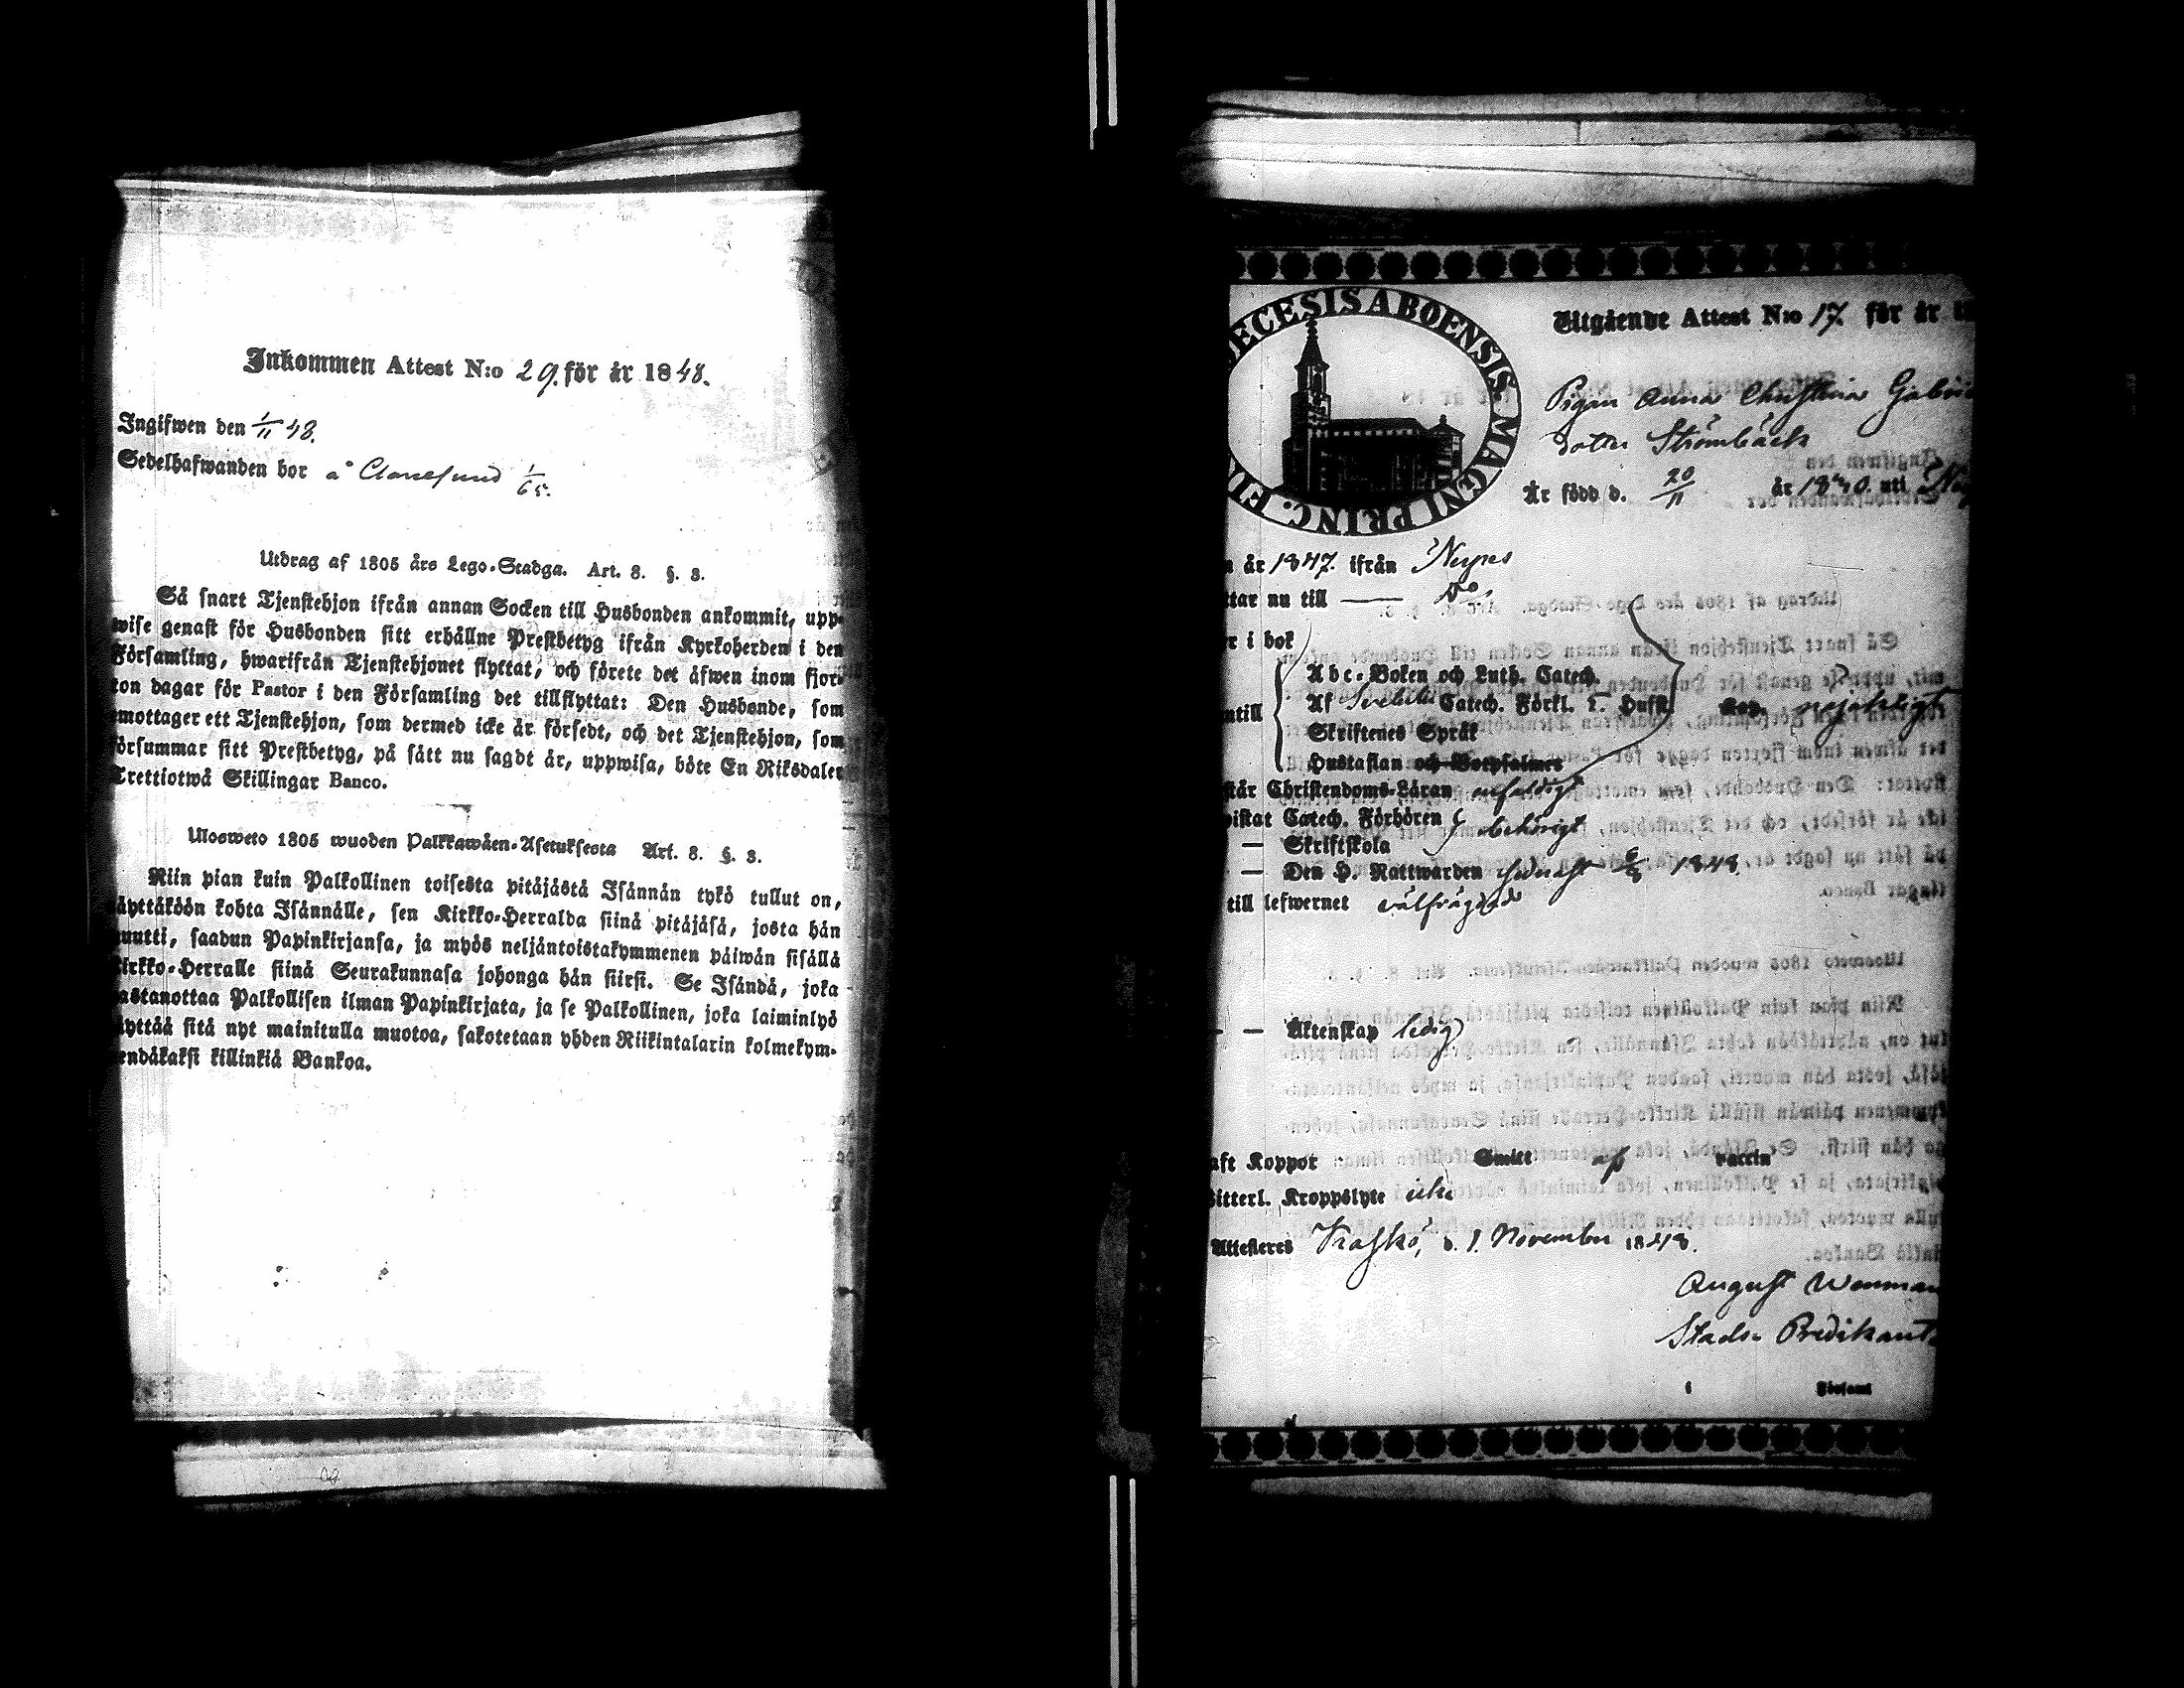 Inkommen Attest N:o 29. för år 1848.
Ingifwen den 1/11 48.
Sedelhafwanden bor å 1/65.
Utdrag af 1805 års Lego-Stadga. Art. 8. §. 3.
Så snart Tjenstehjon ifrån annan Socken till Husbonden ankommit, upp-
wise genast för Husbonden sitt erhållne Prestbetyg ifrån Kyrkoherden i den
Församling, hwarifrån Tjenstehjonet flyttat, och förete det äfwen inom fjor-
ton dagar för Pastor i den Församling det tillflyttat: Den Husbonde, som
emottager ett Tjenstehjon, som dermed icke är försedt, och det Tjenstehjon, som
försummar sitt Prestbetyg, på sätt nu sagdt är, uppwisa, böte En Riksdaler
Trettiotwå Skillingar Banco.
Ulosweto 1805 wuoden Palkkawäen-Asetuksesta Art. 8. §. 3.
Niin pian kuin Palkollinen toisesta pitäjästä Isännän tykö tullut on,
näyttäköön kohta Isännälle, sen Kirkko-Herralda siinä pitäjäsä, josta hän
muutti, saadun Papinkirjansa, ja myös neljäntoistakymmenen päiwän sisällä
Kirkko-Herralle siinä Seurakunnasa johonga hän siirsi. Se Isändä, joka
wastanottaa Palkollisen ilman Papinkirjata, ja se Palkollinen, joka laiminlyö
näyttää sitä nyt mainitulla muotoa, sakotetaan yhden Riikintalarin kolmekym-
mendäkaksi killinkiä Bankoa.
DECESIS ABOENSIS. MAGNI PRINC. FIN
Utgående Attest N:o 17. för år 18
Pigan Anna Christina Gabriels
dotter Strömbäck
Är född d. 20/11 år 1830. uti
n år 1847. ifrån Nerpes
ttar nu till — Do.
r i bok
ntill
Abc-Boken och Luth. Catech.
Af Svebelii Catech. Förkl. t. Husft. nöjaktigt
Skriftenes Språk
Hustaflan och Botpsalmer
står Christendoms-Läran enfaldigt
wistat Catech. Förhören behörigt
— Skriftskola
— Den H. Nattwarden senast 1848.
till lefwernet välfrägdad
— — Äktenskap ledig
aft Koppor Smitt af vaccin
Witterl. Kroppslyte icke
Attesteres Kaskö, d. 1. November 1848.
August
Stads-Predikant
Församl